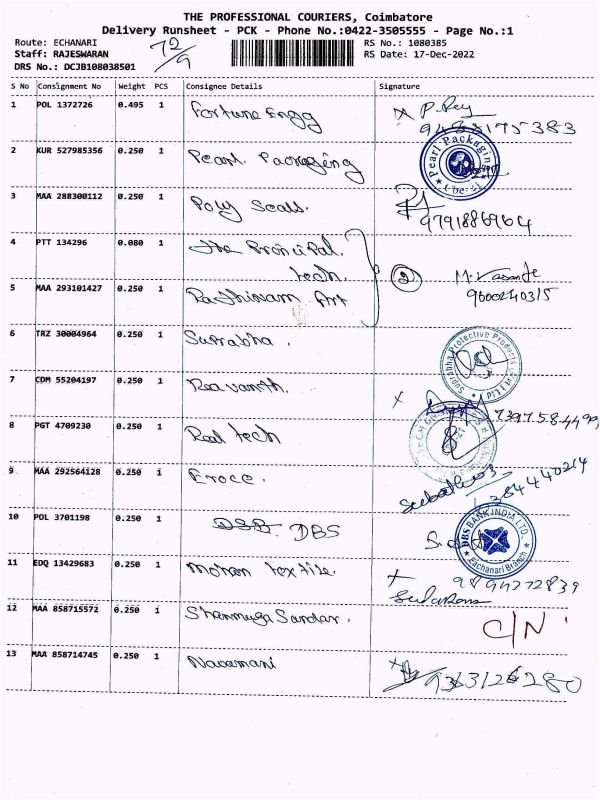 THE PROFESSIONAL COURIERS, Coimbatore
Delivery Runsheet - PCK - Phone No.:0422-3505555 - Page No.:1
Route: ECHANARI
RS No.: 1080385
Staff: RAJESWARAN
RS Date: 17-Dec-2022
DRS No.: DCJB108038501
72/9
S No Consignment No Weight PCS Consignee Details Signature
1 POL 1372726 0.495 1 Fortune Engg
2 KUR 527985356 0.250 1 Pearl Packageing
Pearl Packaging
Cbe-21
3 MAA 288300112 0.250 1 Poly Seals. 9791886964
4 PTT 134296 0.080 1 The Principal.
tech.
2 M. Vasante
5 MAA 293101427 0.250 1 Rathinam Art 9600240315
6 TRZ 30004964 0.250 1 Suprabha.
Suprabha Protective Products
7 CDM 55204197 0.250 1 Revanth.
8 PGT 4709230 0.250 1 Real tech
9 MAA 292564128 0.250 1 Eroce.
10 POL 3701198 0.250 1 DSB DBS
DBS BANK INDIA LTD.
Eachanari Branch
11 EDQ 13429683 0.250 1 Mohan textile.
12 MAA 858715572 0.250 1 Shanmuga Sundar. C/N
13 MAA 858714745 0.250 1 Navamani